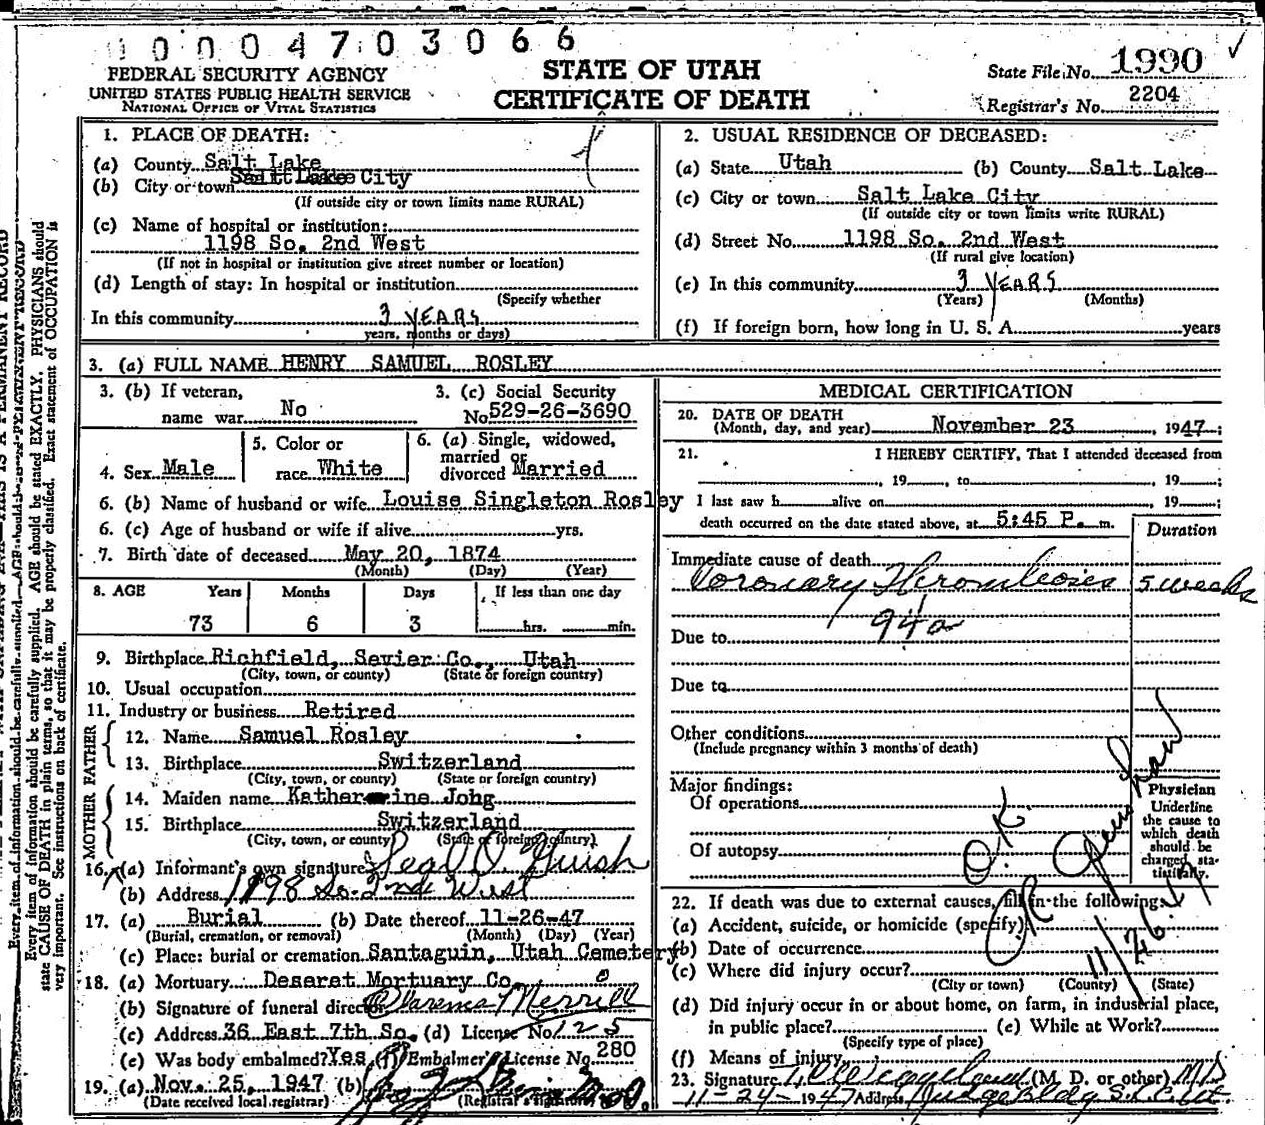 10004703066
FEDERAL SECURITY AGENCY
UNITED STATES PUBLIC HEALTH SERVICE
NATIONAL OFFICE OF VITAL STATISTICS
STATE OF UTAH
CERTIFICATE OF DEATH
State File No. 1990
Registrar's No. 2204
1. PLACE OF DEATH:
(a) County Salt Lake
(b) City or town Salt Lake City
(If outside city or town limits name RURAL)
(c) Name of hospital or institution:
1198 So. 2nd West
(If not in hospital or institution give street number or location)
(d) Length of stay: In hospital or institution
(Specify whether
In this community 3 YEARS
years, months or days)
2. USUAL RESIDENCE OF DECEASED:
(a) State Utah (b) County Salt Lake
(c) City or town Salt Lake City
(If outside city or town limits write RURAL)
(d) Street No. 1198 So. 2nd West
(If rural give location)
(e) In this community 3 YEARS
(Years) (Months)
(f) If foreign born, how long in U. S. A. years
3. (a) FULL NAME HENRY SAMUEL ROSLEY
3. (b) If veteran,
name war No
3. (c) Social Security
No. 529-26-3690
4. Sex Male
5. Color or
race White
6. (a) Single, widowed,
married or
divorced Married
6. (b) Name of husband or wife Louise Singleton Rosley
6. (c) Age of husband or wife if alive yrs.
7. Birth date of deceased May 20, 1874
(Month) (Day) (Year)
8. AGE Years Months Days If less than one day
73 6 3 hrs. min.
9. Birthplace Richfield, Sevier Co., Utah
(City, town, or county) (State or foreign country)
10. Usual occupation
11. Industry or business Retired
FATHER
12. Name Samuel Rosley
13. Birthplace Switzerland
(City, town, or county) (State or foreign country)
MOTHER
14. Maiden name Katherine Johg
15. Birthplace Switzerland
(City, town, or county) (State or foreign country)
16. (a) Informant's own signature
(b) Address 1198 So. 2nd West
17. (a) Burial (b) Date thereof 11-26-47
(Burial, cremation, or removal) (Month) (Day) (Year)
(c) Place: burial or cremation Santaguin, Utah Cemetery
18. (a) Mortuary Deseret Mortuary Co.
(b) Signature of funeral director Merrill
(c) Address 36 East 7th So. (d) License No. 125
(e) Was body embalmed? Yes (f) Embalmer's License No. 280
19. (a) Nov. 25, 1947 (b)
(Date received local registrar) (Registrar's signature)
MEDICAL CERTIFICATION
20. DATE OF DEATH
(Month, day, and year) November 23, 1947;
21. I HEREBY CERTIFY, That I attended deceased from
, 19 , to , 19 ;
I last saw h alive on 19 ;
death occurred on the date stated above, at 5:45 P. m.
Duration
Immediate cause of death
Coronary Thrombosis 5 weeks
94a
Due to
Due to
Other conditions
(Include pregnancy within 3 months of death)
Major findings:
Of operations
Of autopsy
O.K.
Physician
Underline
the cause to
which death
should be
charged sta-
tistically.
22. If death was due to external causes, fill in the following:
(a) Accident, suicide, or homicide (specify)
(b) Date of occurrence
11/26/47
(c) Where did injury occur?
(City or town) (County) (State)
(d) Did injury occur in or about home, on farm, in industrial place,
in public place? (e) While at Work?
(Specify type of place)
(f) Means of injury
23. Signature (M. D. or other) MD
11-24-1947 Address Judge Bldg S.L.C. Ut.
Every item of information should be carefully supplied. AGE should be stated EXACTLY. PHYSICIANS should
state CAUSE OF DEATH in plain terms, so that it may be properly classified. Exact statement of OCCUPATION is
very important. See instructions on back of certificate.